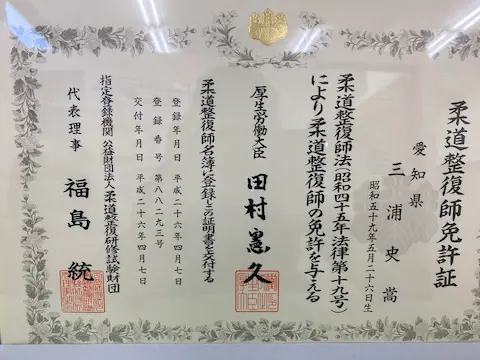 柔道整復師免許証
愛知県
三浦史嵩
昭和五十九年五月二十六日生
柔道整復師法(昭和四十五年法律第十九号)
により柔道整復師の免許を与える
厚生労働大臣 田村憲久
柔道整復師名簿に登録しこの証明書を交付する
登録年月日 平成二十六年四月七日
登録番号 第八八二九三号
交付年月日 平成二十六年四月七日
指定登録機関 公益財団法人柔道整復研修試験財団
代表理事 福島統